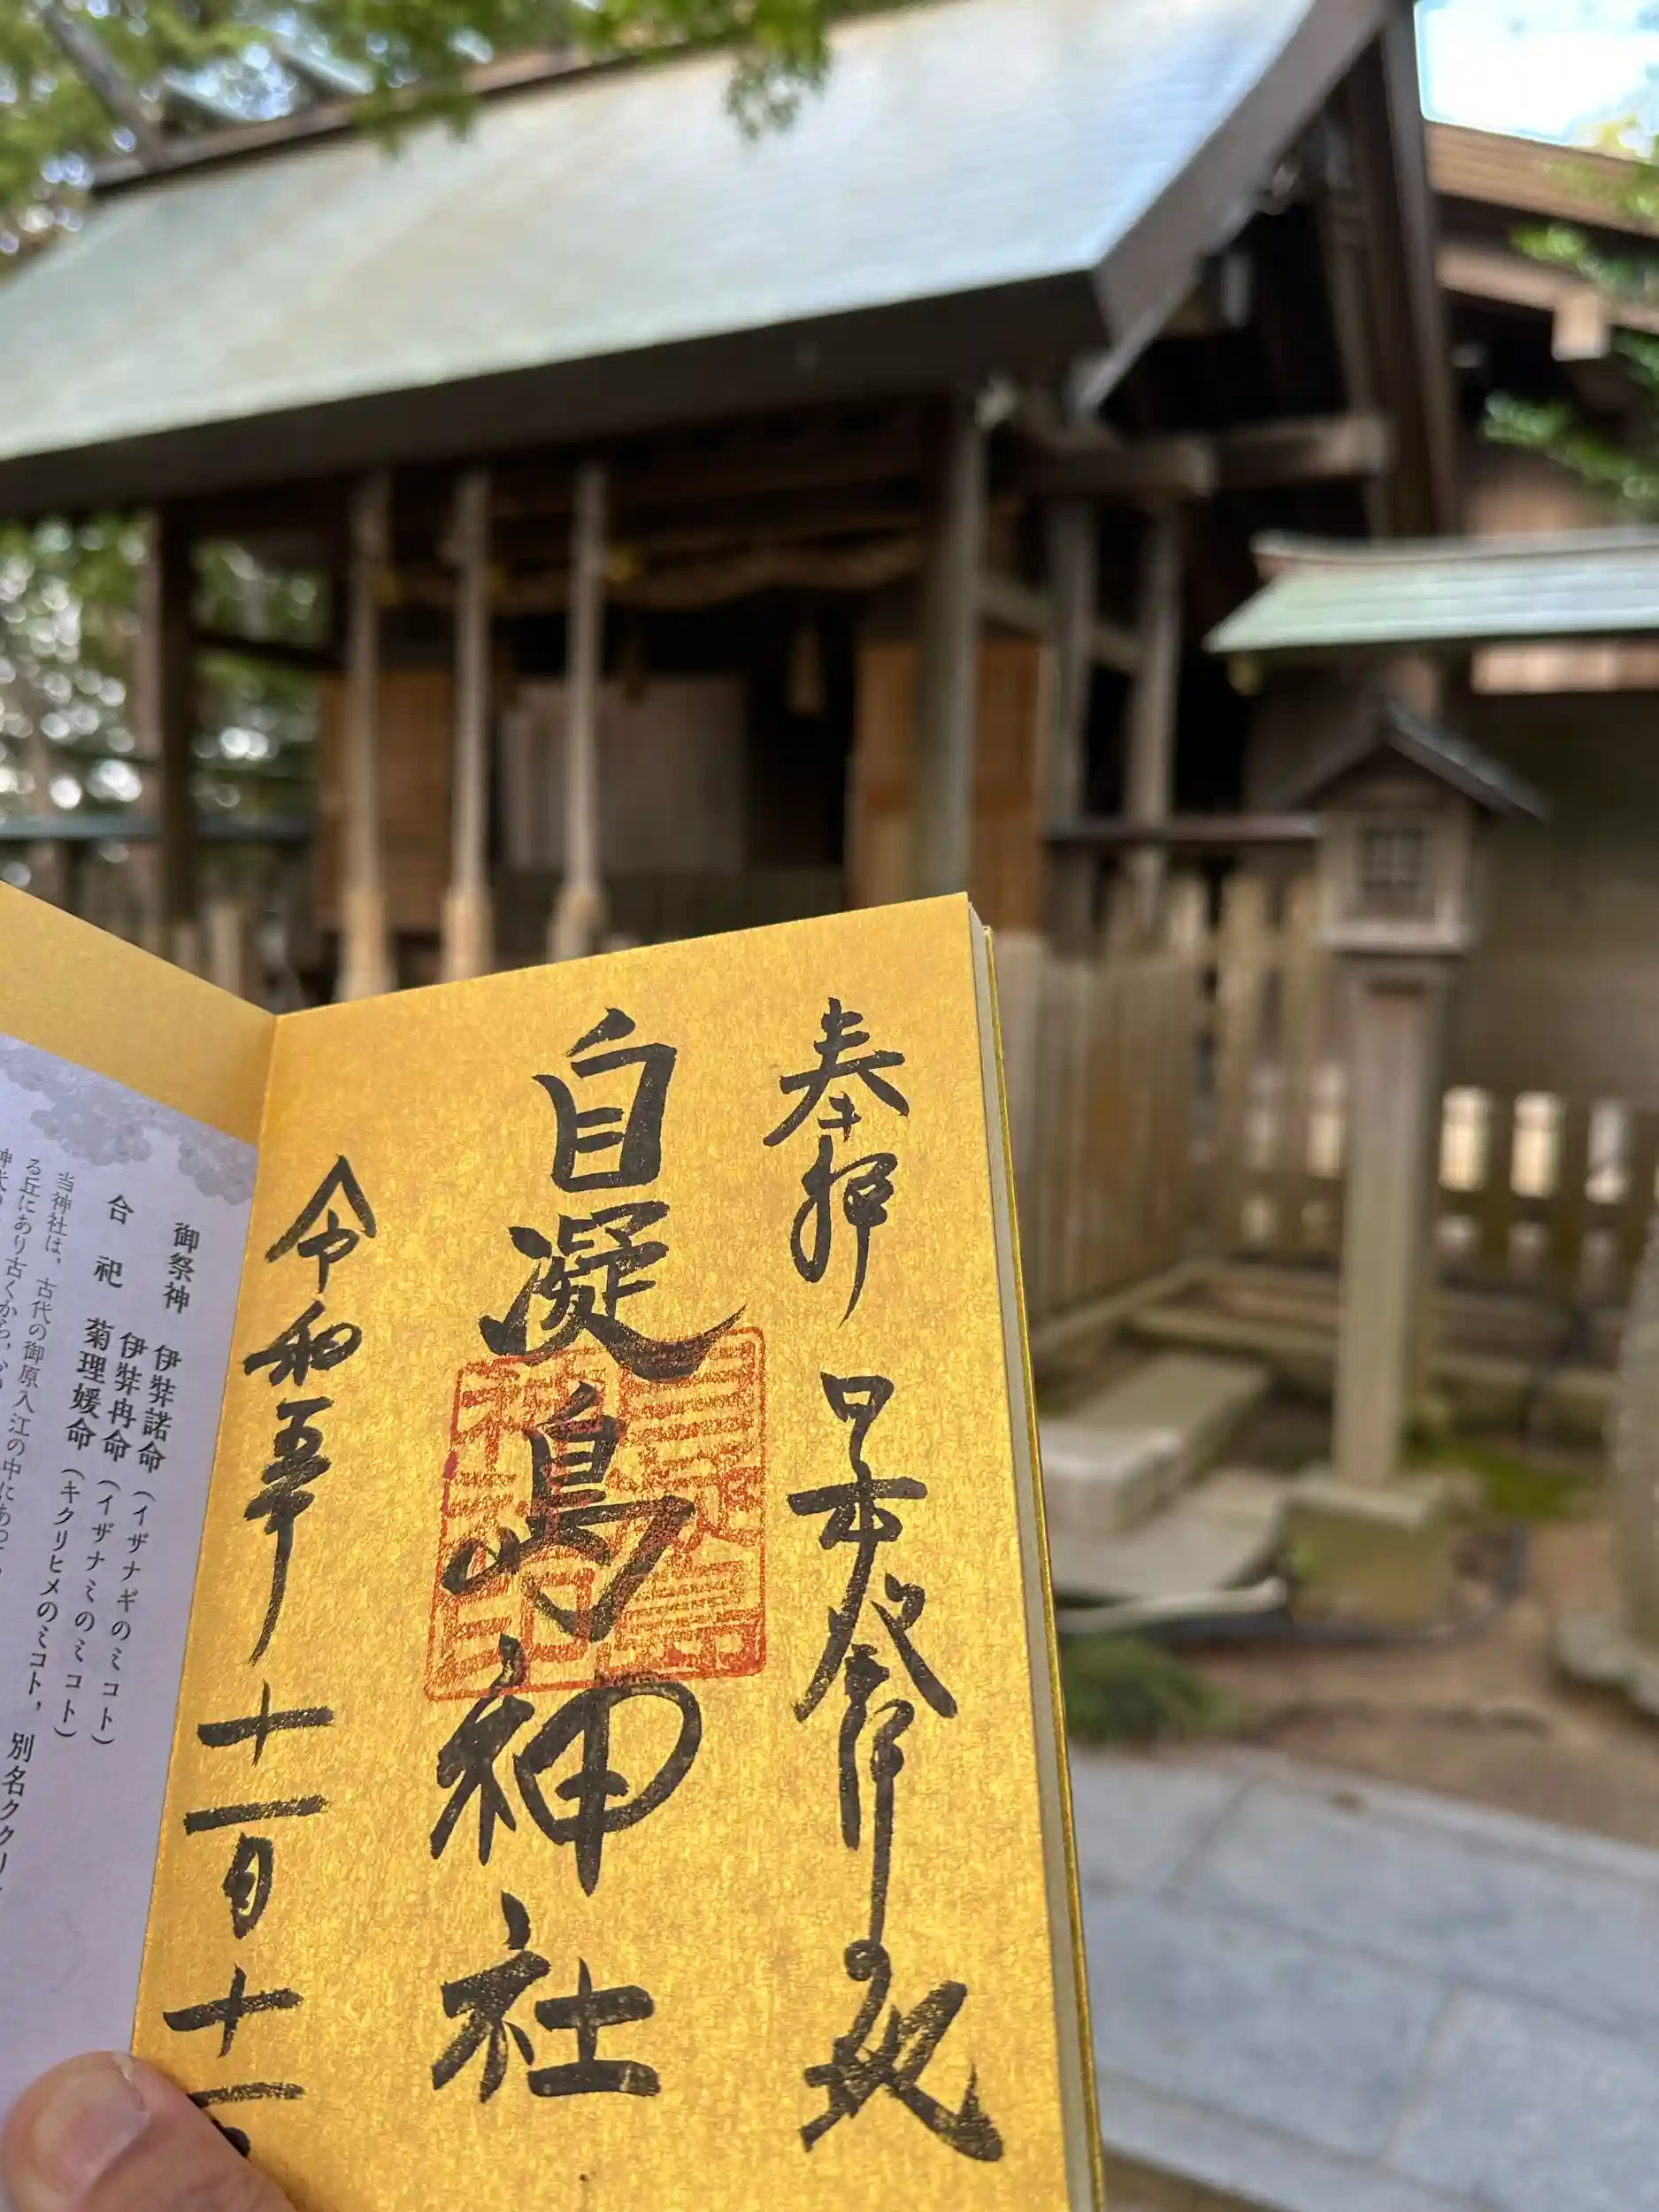 奉拝 日本発祥の地
自凝島神社
令和五年十一月十一日
自凝島
神社印
御祭神 伊弉諾命（イザナギのミコト）
伊弉冉命（イザナミのミコト）
合祀 菊理媛命（キクリヒメのミコト，別名ククリ
当神社は，古代の御原入江の中にあっ
る丘にあり古くから，